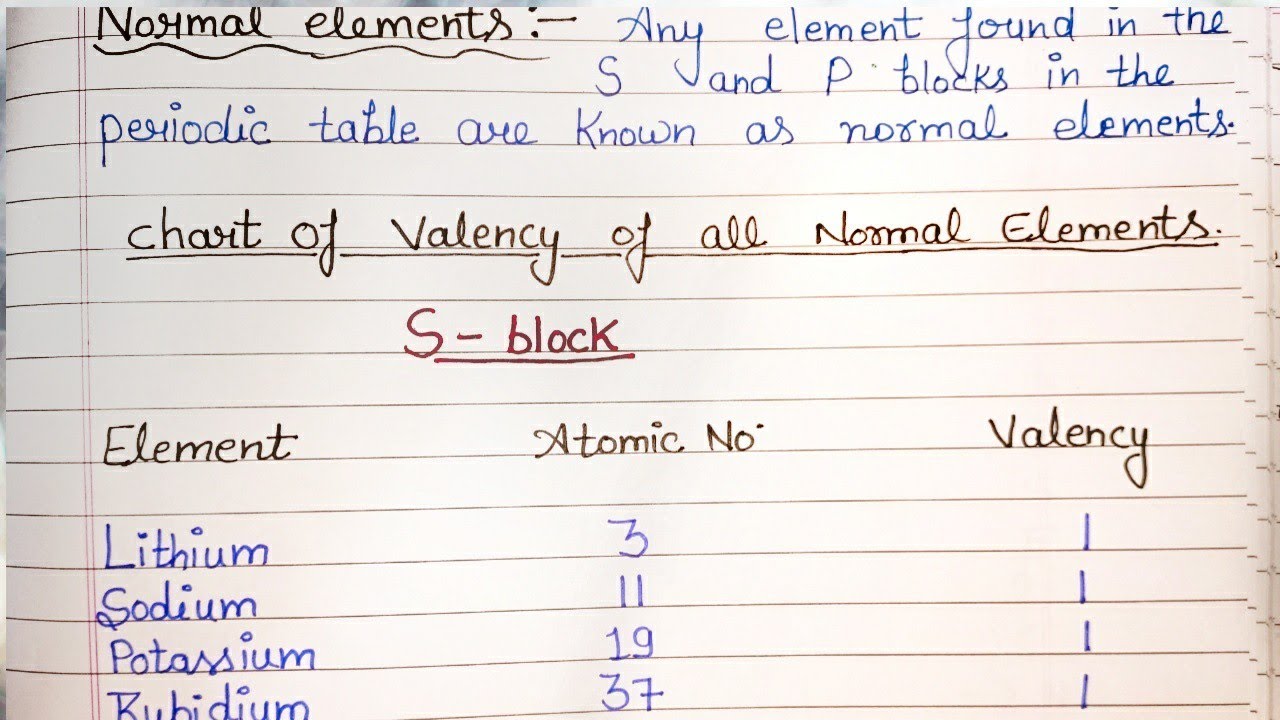 Normal elements :- Any element found in the
S and P blocks in the
periodic table are known as normal elements.
Chart of Valency of all Normal Elements.
S - block
Element Atomic No. Valency
Lithium 3 1
Sodium 11 1
Potassium 19 1
Rubidium 37 1